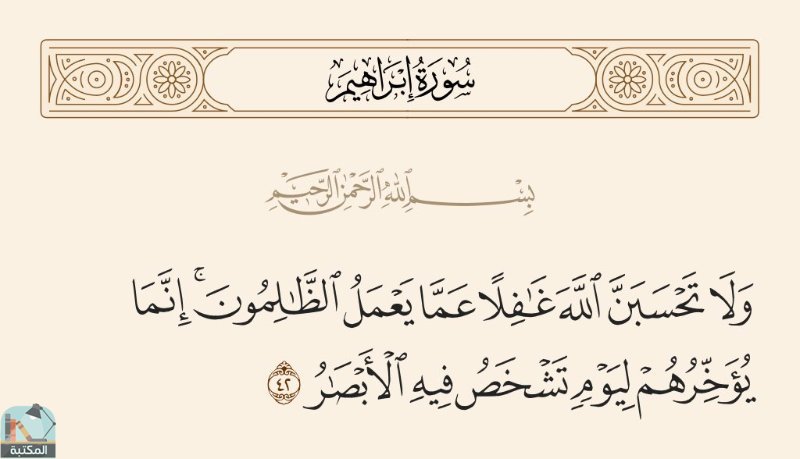 سُورَةُ إِبْرَاهِيمَ
بِسْمِ ٱللَّهِ ٱلرَّحْمَٰنِ ٱلرَّحِيمِ
وَلَا تَحْسَبَنَّ ٱللَّهَ غَٰفِلًا عَمَّا يَعْمَلُ ٱلظَّٰلِمُونَ ۚ إِنَّمَا
يُؤَخِّرُهُمْ لِيَوْمٍ تَشْخَصُ فِيهِ ٱلْأَبْصَٰرُ ٤٢
المكتبة